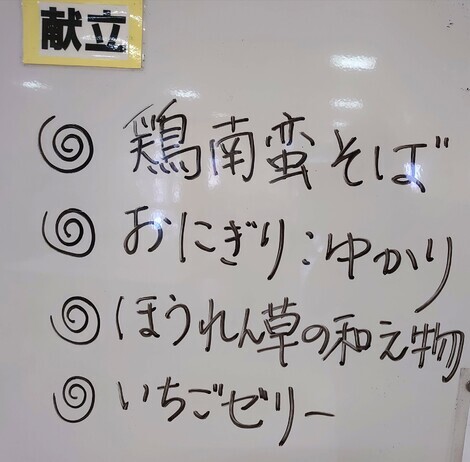 献立
鶏南蛮そば
おにぎり:ゆかり
ほうれん草の和え物
いちごゼリー